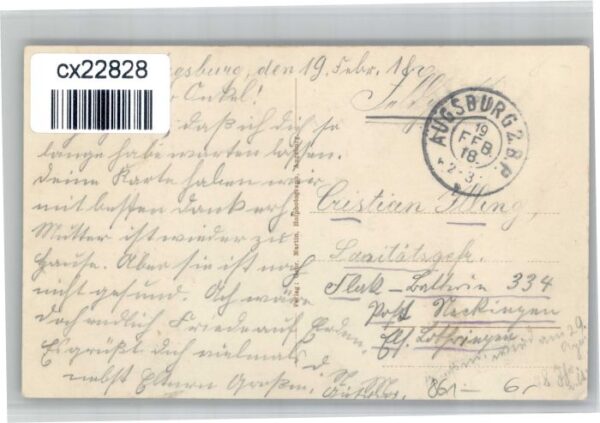 cx22828
Augsburg, den 19. Febr. 18.
Onkel!
daß ich dich so
lange habe warten lassen.
Deine Karte haben wir
mit besten Dank erh.
Mutter ist wieder zu
Hause. Aber sie ist noch
nicht gesund. Och wäre
doch endlich Friede auf Erden.
Es grüßt dich vielmals d.
nebst Eltern
Feldpost
AUGSBURG 2 B.P.
19
FEB.
18.
2-3
Cristian Illing,
Sanitätsgefr.
Flak-Batterie 334
Post Neckingen
Els. Lothringen
861- 6,-